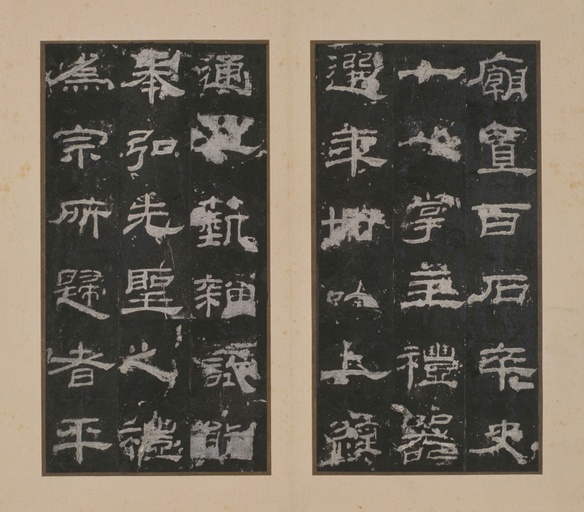 廟置百石卒史
一人掌主禮器
選年卌以上經
通一蓺雜試能
奉弘先聖之禮
為宗所歸者平